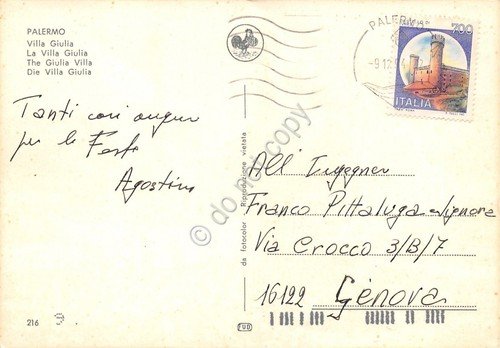 PALERMO
Villa Giulia
La Villa Giulia
The Giulia Villa
Die Villa Giulia
PALERMO
700
ITALIA
Tanti cari auguri
per le Feste
Agostino
da fotocolor Riproduzione vietata
All' Ingegner
Franco Pittaluga e Signora
Via Crocco 3/B/7
16122 Genova
216
© do not copy